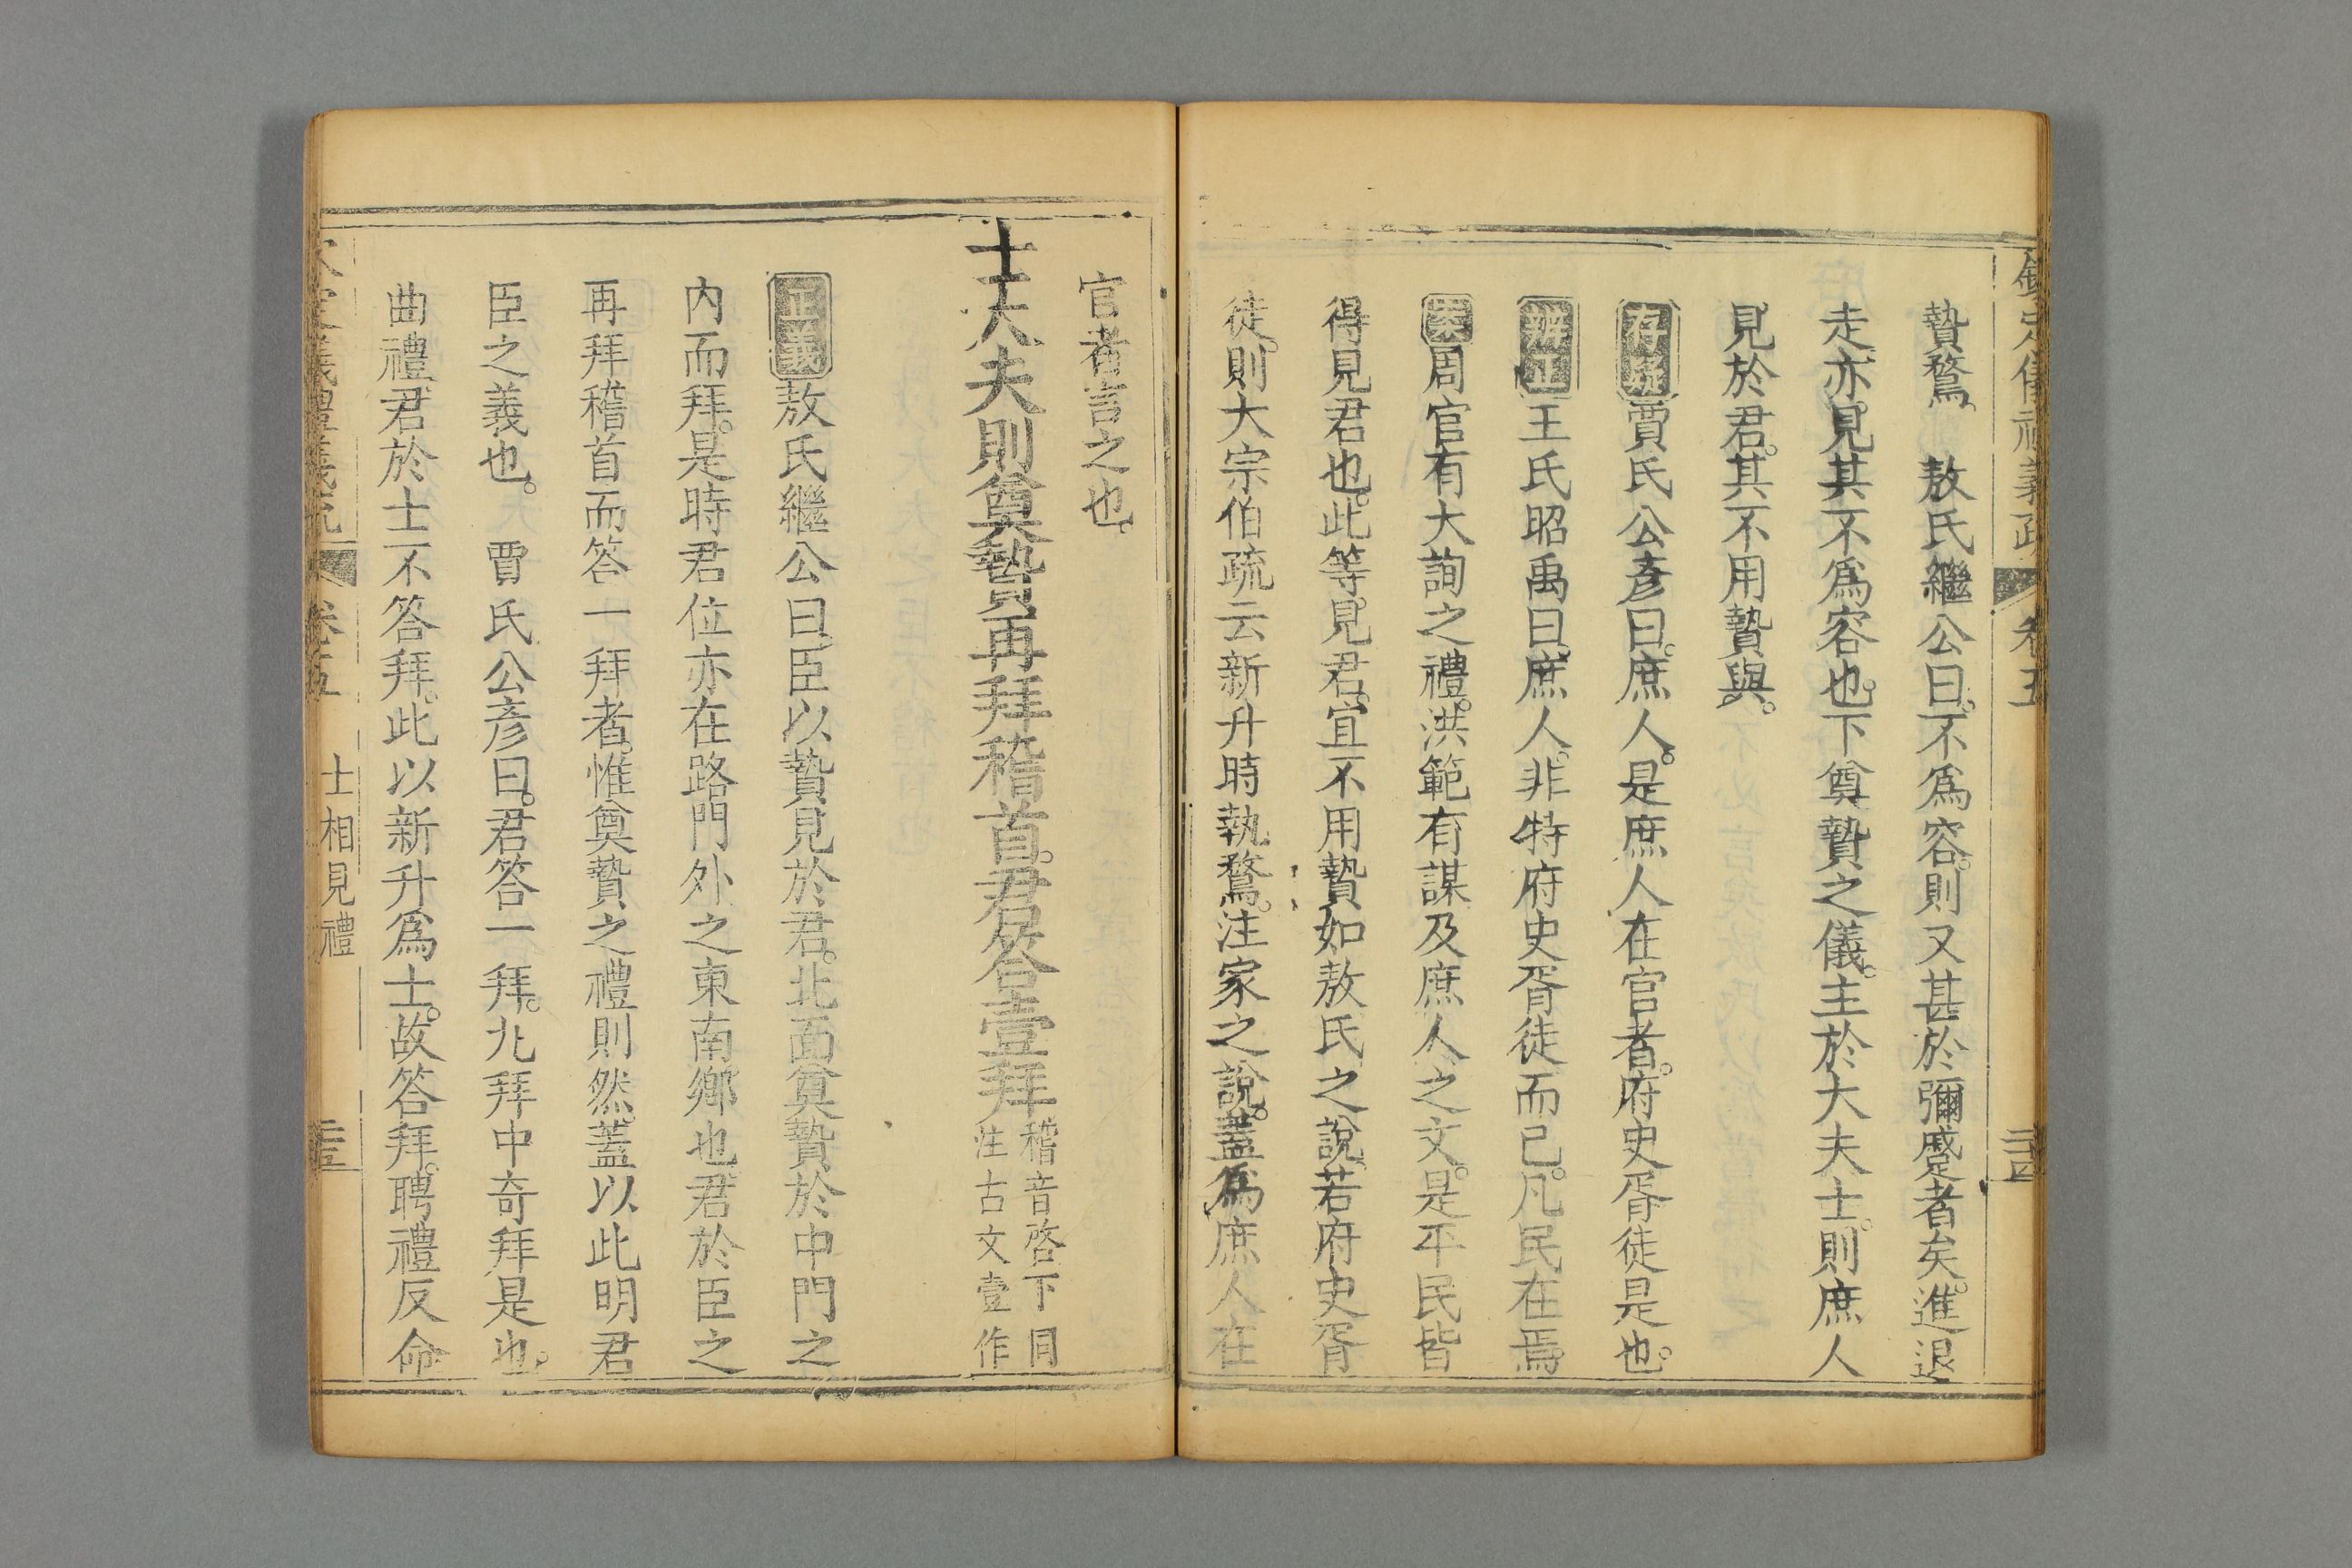 欽定儀禮義疏 卷五 二十四
贄鶩。 敖氏繼公曰。不爲容。則又甚於彌蹙者矣。進退
走。亦見其不爲容也。下奠贄之儀。主於大夫士。則庶人
見於君。其不用贄與。
存疑賈氏公彥曰。庶人。是庶人在官者。府史胥徒是也。
辨正王氏昭禹曰。庶人。非特府史胥徒而已。凡民在焉。
案周官有大詢之禮。洪範有謀及庶人之文。是平民皆
得見君也。此等見君。宜不用贄如敖氏之說。若府史胥
徒。則大宗伯疏云新升時執鶩。注家之說。蓋爲庶人在
官者言之也。
士大夫則奠贄再拜稽首。君答壹拜稽音啓下同
注古文壹作
正義敖氏繼公曰。臣以贄見於君。北面奠贄於中門之
內而拜。是時君位亦在路門外之東南鄉也。君於臣之
再拜稽首而答一拜者。惟奠贄之禮則然。蓋以此明君
臣之義也。 賈氏公彥曰。君答一拜。九拜中奇拜是也。
曲禮君於士不答拜。此以新升爲士。故答拜。聘禮反命
欽定儀禮義疏 卷五 士相見禮 二十五